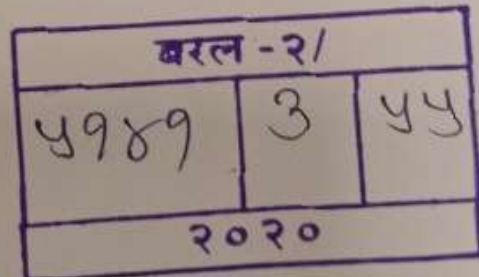 बरल - २/
५१४१ ३ ५५
२०२०